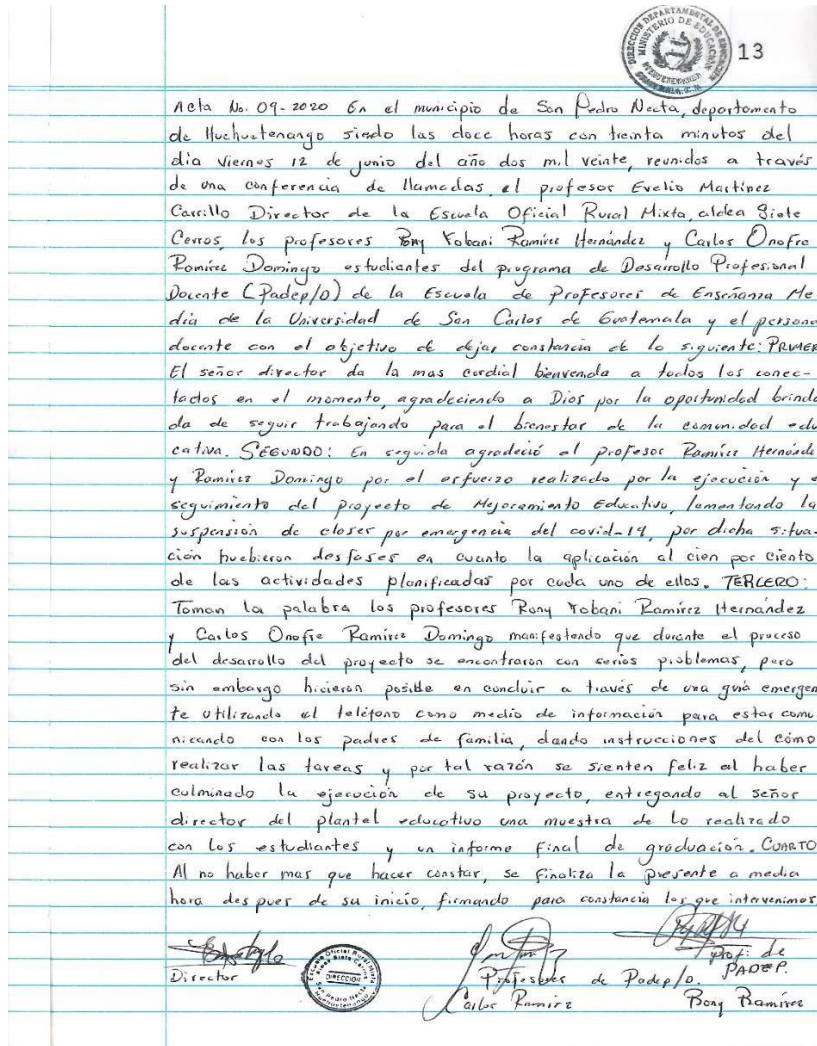 DIRECCION DEPARTAMENTAL DE EDUCACION
MINISTERIO DE EDUCACION
HUEHUETENANGO
GUATEMALA, C. A.
13
Acta No. 09-2020 En el municipio de San Pedro Necta, departamento
de Huehuetenango siedo las doce horas con treinta minutos del
día viernes 12 de junio del año dos mil veinte, reunidos a través
de una conferencia de llamadas, el profesor Evelio Martínez
Carrillo Director de la Escuela Oficial Rural Mixta, aldea Siete
Cerros, los profesores Rony Yobani Ramírez Hernández y Carlos Onofre
Ramírez Domingo estudiantes del programa de Desarrollo Profesional
Docente (Padep/D) de la Escuela de Profesores de Enseñanza Me
dia de la Universidad de San Carlos de Guatemala y el persona
docente con el objetivo de dejar constancia de lo siguiente: PRIMER
El señor director da la mas cordial bienvenida a todos los conec-
tados en el momento, agradeciendo a Dios por la oportunidad brinda
da de seguir trabajando para el bienestar de la comunidad edu
cativa. SEGUNDO: En seguida agradeció al profesor Ramírez Hernánde
y Ramírez Domingo por el esfuerzo realizado por la ejecución y e
seguimiento del proyecto de Mejoramiento Educativo, lamentando la
suspensión de clases por emergencia del covid-19, por dicha situa-
ción huebieron desfases en cuanto la aplicación al cien por ciento
de las actividades planificadas por cada uno de ellos. TERCERO:
Toman la palabra los profesores Rony Yobani Ramírez Hernández
y Carlos Onofre Ramírez Domingo manifestando que durante el proceso
del desarrollo del proyecto se encontraron con serios problemas, pero
sin embargo hicieron posible en concluir a través de una guía emergen
te utilizando el teléfono como medio de información para estar comu
nicando con los padres de familia, dando instrucciones del cómo
realizar las tareas y por tal razón se sienten feliz al haber
culminado la ejecución de su proyecto, entregando al señor
director del plantel educativo una muestra de lo realizado
con los estudiantes y un informe final de graduación. CUARTO
Al no haber mas que hacer constar, se finaliza la presente a media
hora despues de su inicio, firmando para constancia los que intervenimos
Director
Escuela Oficial Rural Mixta
Aldea Siete Cerros
DIRECCION
San Pedro Necta
Huehuetenango
Profesores de Padep/D.
Carlos Ramírez
Prof. de
PADEP.
Rony Ramírez